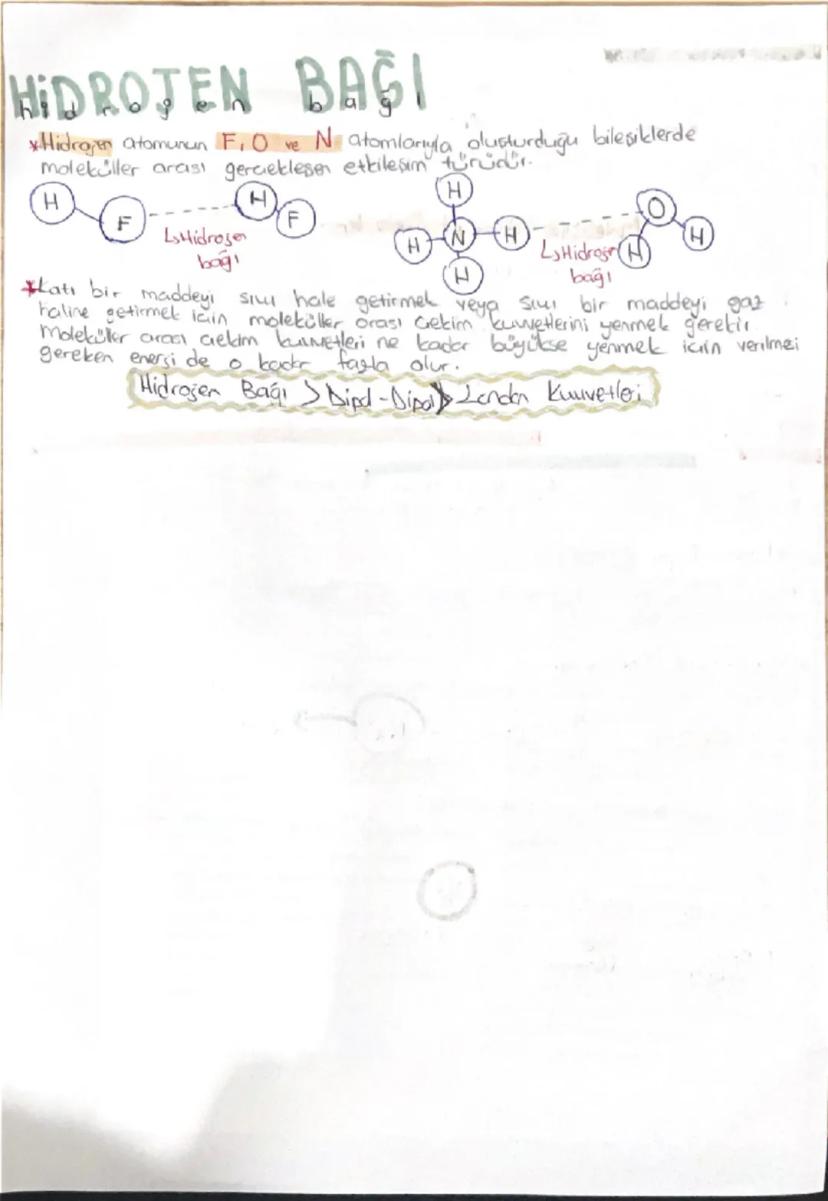 HİDROJEN BAĞI
hidrogen bağı
*Hidrojen atomunun F, O ve N atomlarıyla oluşturduğu bileşiklerde
moleküller arası gerçekleşen etkileşim türüdür.
H F H F
↳Hidrojen
bağı
H H N H H
O H H
↳Hidrojen
bağı
*Katı bir maddeyi sıvı hale getirmek veya sıvı bir maddeyi gaz
haline getirmek için moleküller arası çekim kuvvetlerini yenmek gerekir.
Moleküller arası çekim kuvvetleri ne kadar büyükse yenmek için verilmesi
gereken enerji de o kadar fazla olur.
Hidrojen Bağı > Dipol-Dipol > London Kuvvetleri